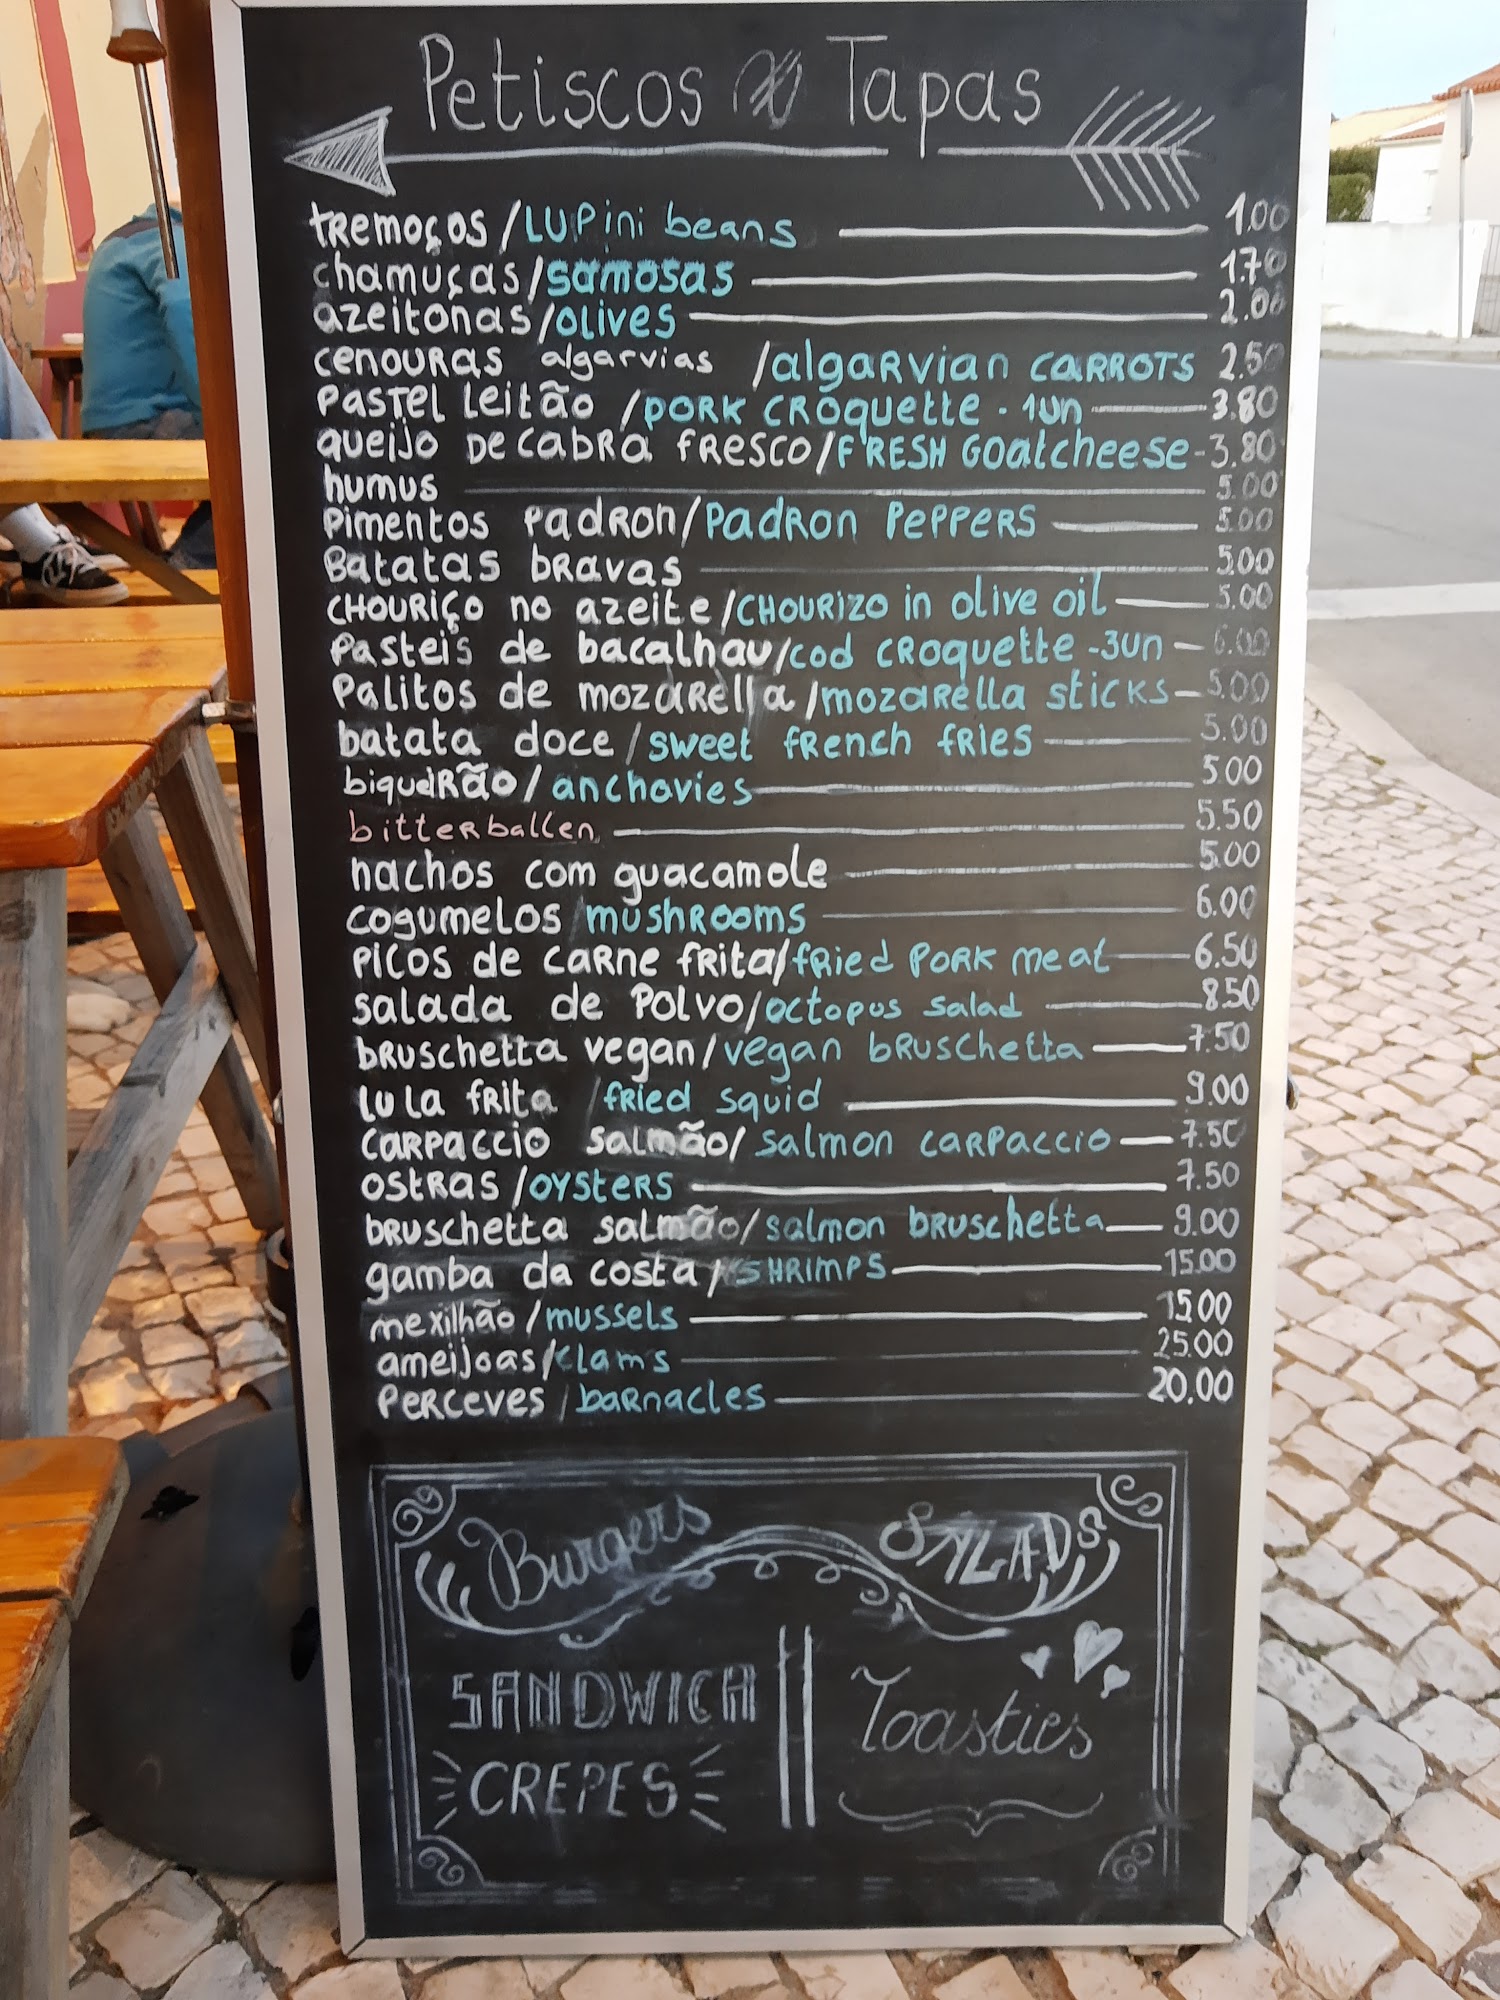 Petiscos & Tapas
tremoços/Lupini beans 1.00
chamuças/samosas 1.70
azeitonas/olives 2.00
cenouras algarvias /algarvian carrots 2.50
Pastel Leitão /pork croquette - 1un 3.80
queijo de cabra fresco/FRESH Goatcheese - 3.80
humus 5.00
Pimentos Padron/Padron Peppers 5.00
Batatas bravas 5.00
CHOURIÇO no azeite/CHOURIZO in olive oil 5.00
Pasteis de bacalhau/cod croquette -3un 6.00
Palitos de mozarella/mozarella sticks 5.00
batata doce/sweet french fries 5.00
biqueirão/anchovies 5.00
bitterballen 5.50
nachos com guacamole 5.00
cogumelos mushrooms 6.00
Picos de carne frita/fried Pork meat 6.50
salada de Polvo/octopus salad 8.50
bruschetta vegan/vegan bruschetta 7.50
lula frita /fried squid 9.00
carpaccio salmão/salmon carpaccio 7.50
ostras/oysters 7.50
bruschetta salmão/salmon bruschetta 9.00
gamba da costa/SHRIMPS 15.00
mexilhão/mussels 15.00
ameijoas/clams 25.00
Perceves/barnacles 20.00
Burgers SALADS
SANDWICH Toasties
CREPES